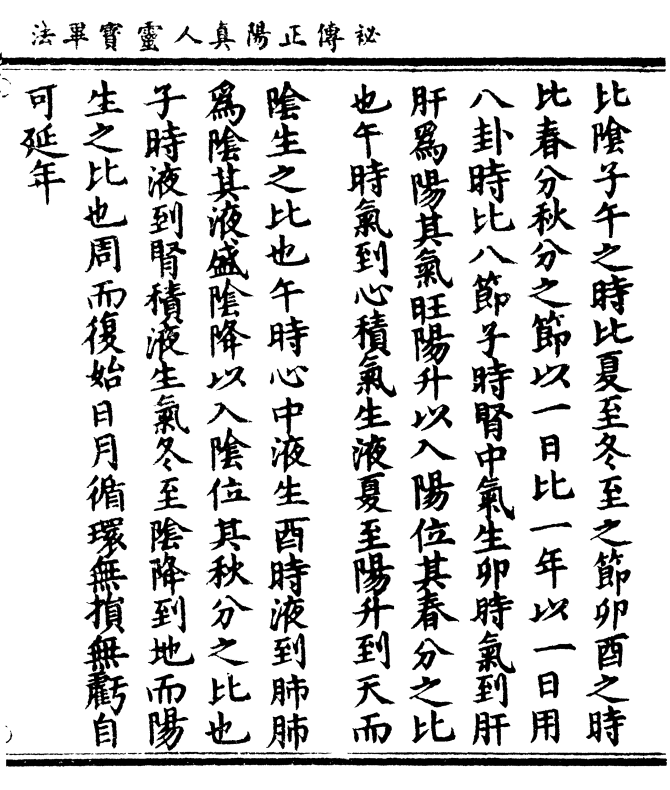 祕傳正陽真人靈寳畢法
比陰子午之時比夏至冬至之節卯酉之時
比春分秋分之節以一日比一年以一日用
八卦時比八節子時腎中氣生卯時氣到肝
肝爲陽其氣旺陽升以入陽位其春分之比
也午時氣到心積氣生液夏至陽升到天而
陰生之比也午時心中液生酉時液到肺肺
爲陰其液盛陰降以入陰位其秋分之比也
子時液到腎積液生氣冬至陰降到地而陽
生之比也周而復始日月循環無損無虧自
可延年